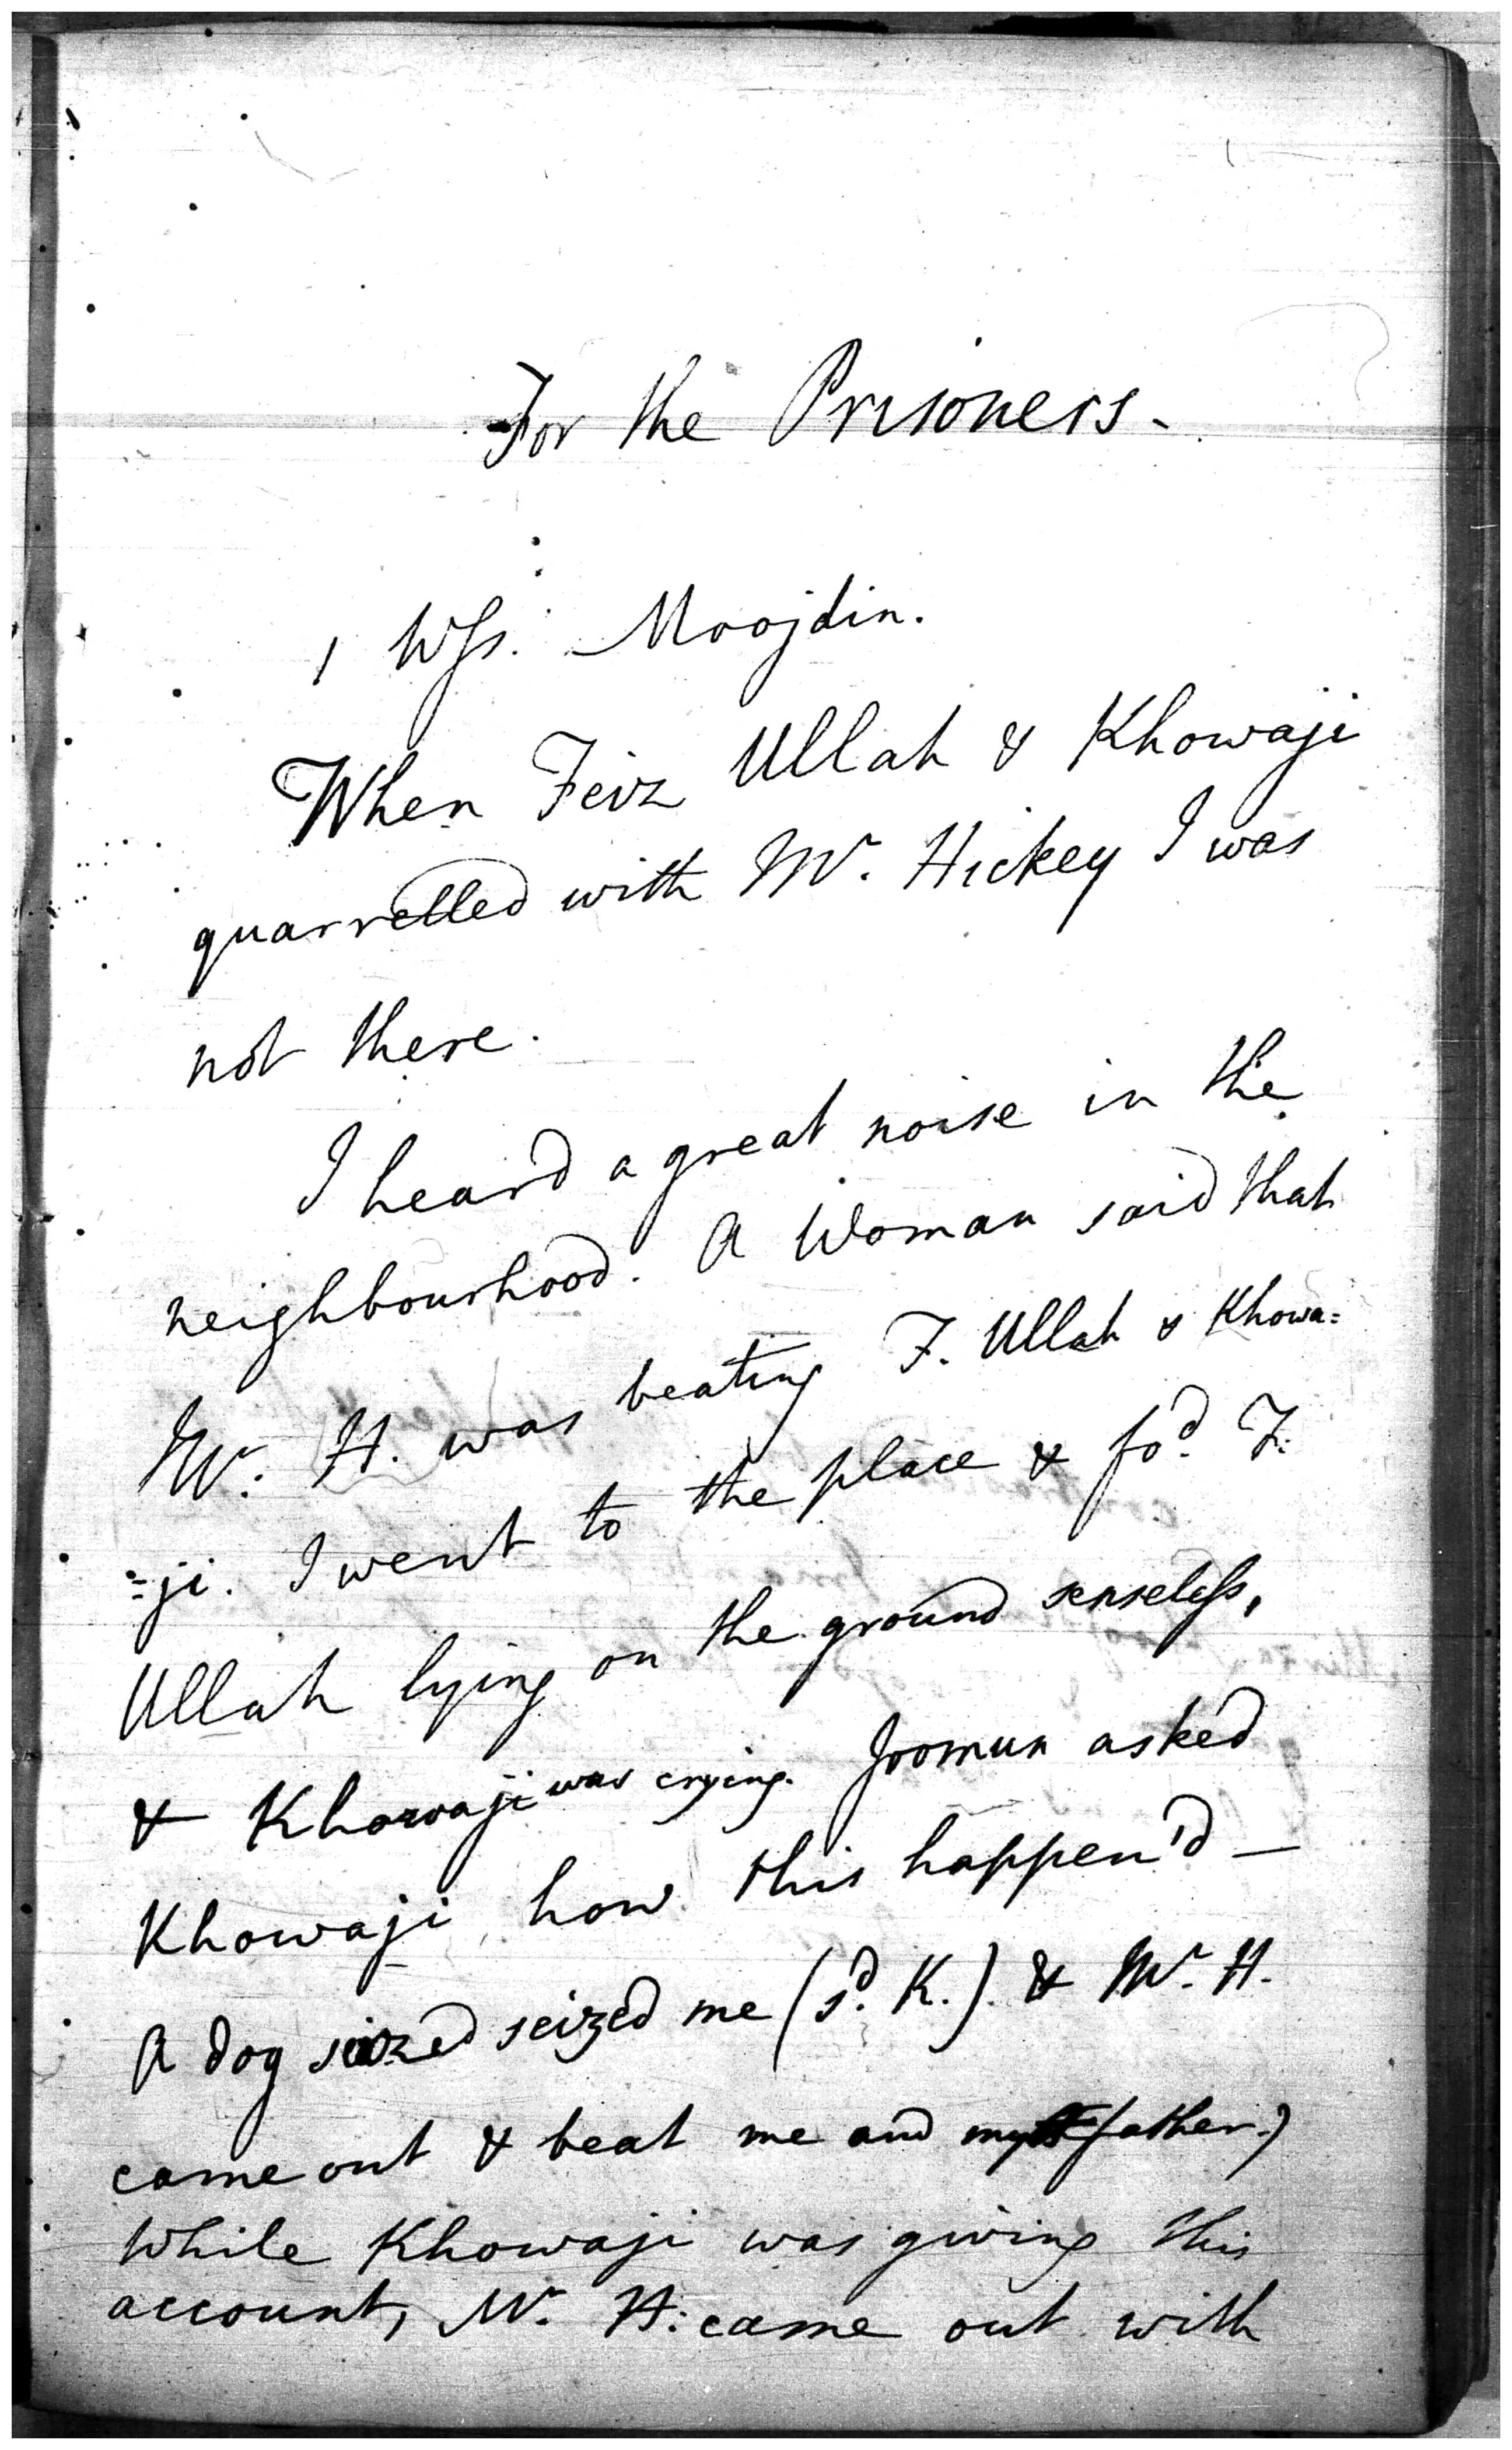 For the Prisoners -
1 Wſs. Moojdin.
When Feiz Ullah & Khowaji
quarrelled with Mr. Hickey I was
not there.
I heard a great noise in the
neighbourhood. A Woman said that
Mr. H. was beating F. Ullah & Khowa=
=ji. I went to the place & fod. F.
Ullah lying on the ground senseleſs,
& Khowaji was crying. Joomun asked
Khowaji how this happen'd —
A dog seized seized me (sd. K.) & Mr. H.
came out & beat me and my father.)
While Khowaji was giving this
account, Mr. H. came out with